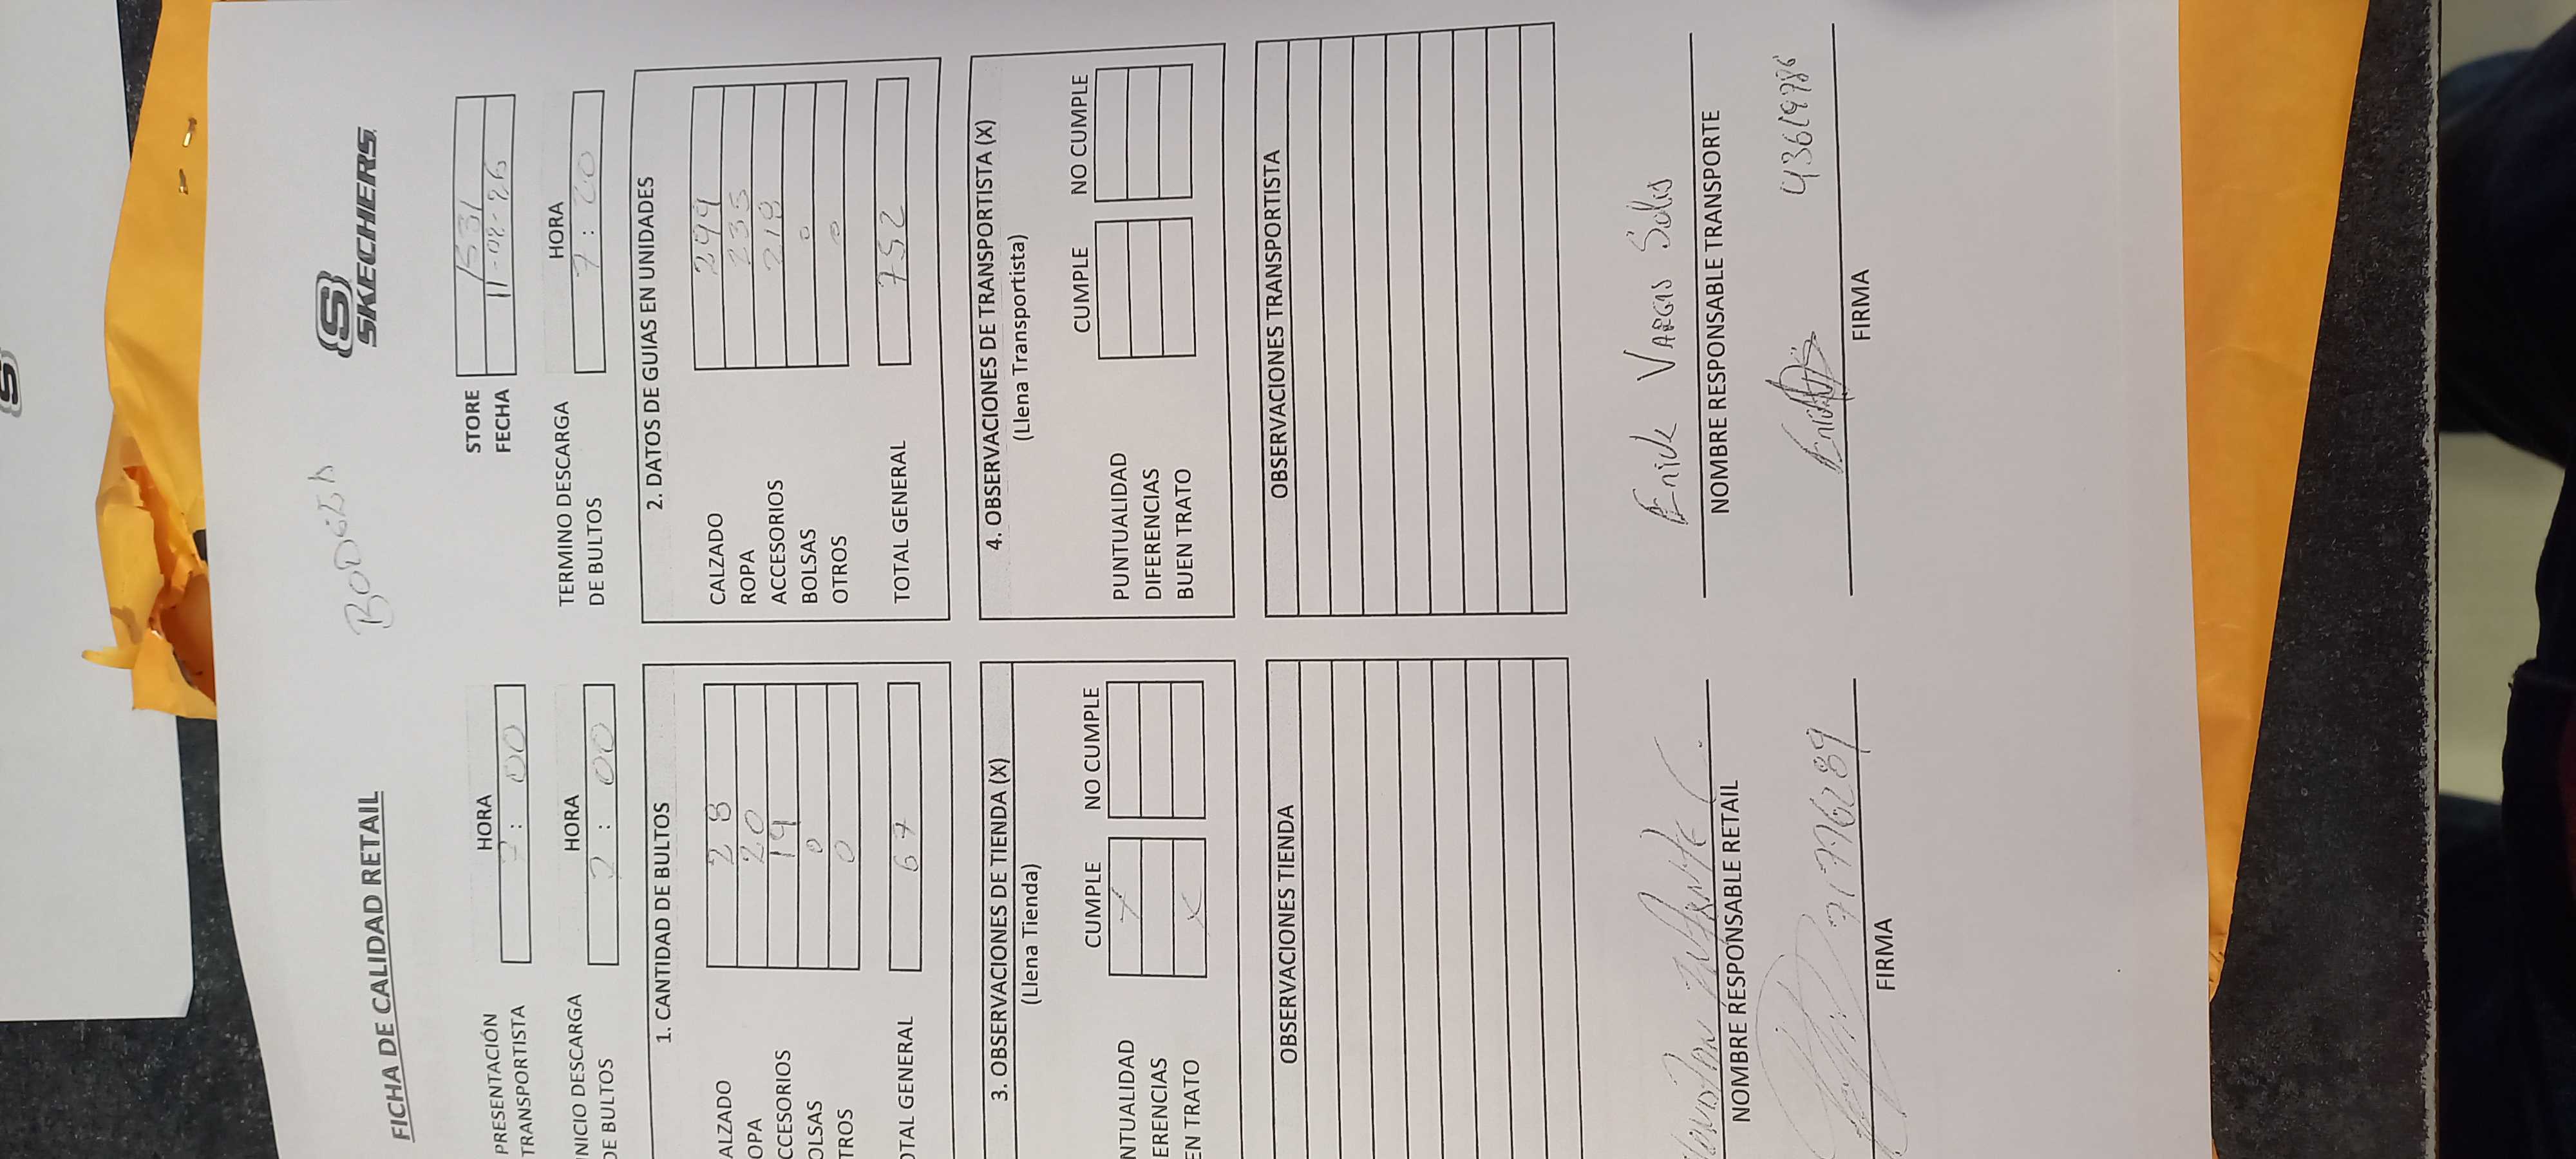 BODEGA
FICHA DE CALIDAD RETAIL
SKECHERS
STORE 1531
FECHA 11-02-26
PRESENTACIÓN TRANSPORTISTA
HORA
7:00
INICIO DESCARGA DE BULTOS
HORA
7:00
TERMINO DESCARGA DE BULTOS
HORA
7:20
1. CANTIDAD DE BULTOS
ALZADO 28
OPA 20
CCESORIOS 19
OLSAS 0
TROS 0
OTAL GENERAL 67
2. DATOS DE GUIAS EN UNIDADES
CALZADO 299
ROPA 235
ACCESORIOS 218
BOLSAS 0
OTROS 0
TOTAL GENERAL 752
3. OBSERVACIONES DE TIENDA (X)
(Llena Tienda)
CUMPLE NO CUMPLE
NTUALIDAD X
ERENCIAS
EN TRATO X
4. OBSERVACIONES DE TRANSPORTISTA (X)
(Llena Transportista)
CUMPLE NO CUMPLE
PUNTUALIDAD
DIFERENCIAS
BUEN TRATO
OBSERVACIONES TIENDA
OBSERVACIONES TRANSPORTISTA
NOMBRE RESPONSABLE RETAIL
71776289
FIRMA
Enick VARGAS Solis
NOMBRE RESPONSABLE TRANSPORTE
43619786
FIRMA